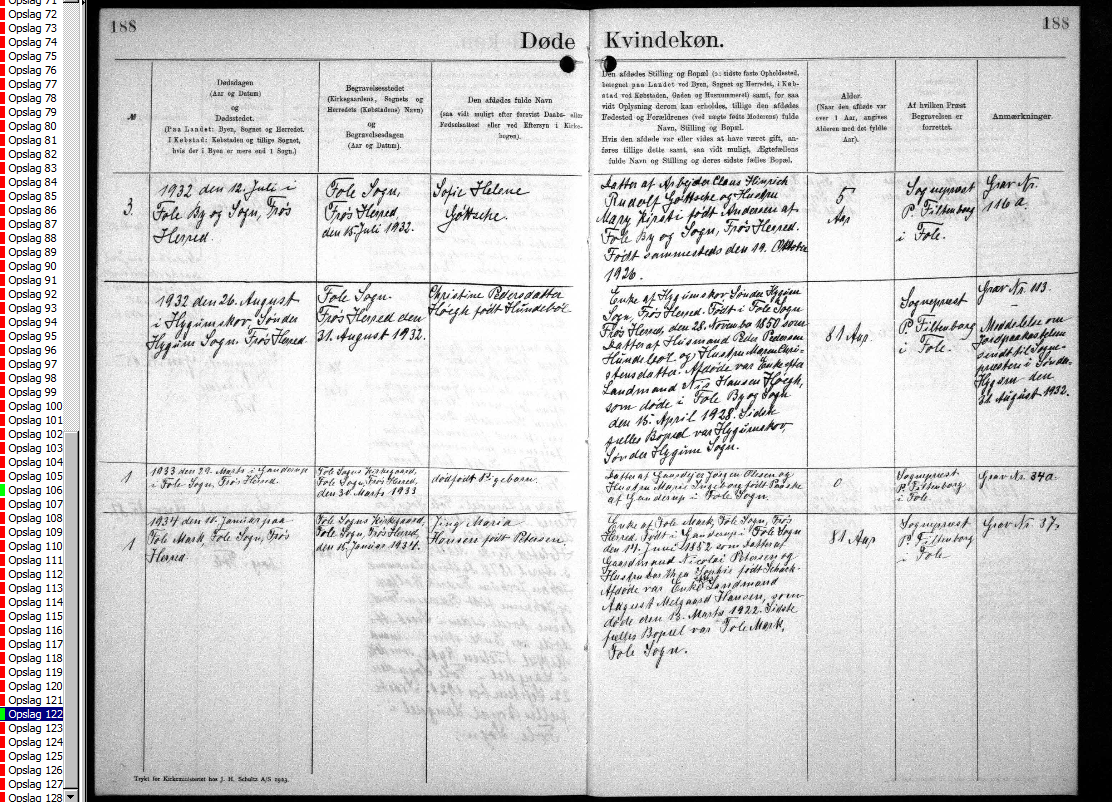 Opslag 71
Opslag 72
Opslag 73
Opslag 74
Opslag 75
Opslag 76
Opslag 77
Opslag 78
Opslag 79
Opslag 80
Opslag 81
Opslag 82
Opslag 83
Opslag 84
Opslag 85
Opslag 86
Opslag 87
Opslag 88
Opslag 89
Opslag 90
Opslag 91
Opslag 92
Opslag 93
Opslag 94
Opslag 95
Opslag 96
Opslag 97
Opslag 98
Opslag 99
Opslag 100
Opslag 101
Opslag 102
Opslag 103
Opslag 104
Opslag 105
Opslag 106
Opslag 107
Opslag 108
Opslag 109
Opslag 110
Opslag 111
Opslag 112
Opslag 113
Opslag 114
Opslag 115
Opslag 116
Opslag 117
Opslag 118
Opslag 119
Opslag 120
Opslag 121
Opslag 122
Opslag 123
Opslag 124
Opslag 125
Opslag 126
Opslag 127
Opslag 128
188
Døde Kvindekøn.
188
№
Dødsdagen
(Aar og Datum)
og
Dødsstedet.
(Paa Landet: Byen, Sognet og Herredet.
I Købstad: Købstaden og tillige Sognet,
hvis der i Byen er mere end 1 Sogn.)
Begravelsesstedet
(Kirkegaardens, Sognets og
Herredets (Købstadens) Navn)
og
Begravelsesdagen
(Aar og Datum).
Den afdødes fulde Navn
(saa vidt muligt efter forevist Daabs- eller
Fødselsattest eller ved Eftersyn i Kirke-
bogen).
Den afdødes Stilling og Bopæl (ɔ: sidste faste Opholdssted,
betegnet paa Landet ved Byen, Sognet og Herredet, i Køb-
stad ved Købstaden, Gaden og Husnummeret) samt, for saa
vidt Oplysning derom kan erholdes, tillige den afdødes
Fødested og Forældrenes (ved uægte fødte Moderens) fulde
Navn, Stilling og Bopæl.
Hvis den afdøde var eller vides at have været gift, an-
føres tillige dette samt, saa vidt muligt, Ægtefællens
fulde Navn og Stilling og deres sidste fælles Bopæl.
Alder.
(Naar den afdøde var
over 1 Aar, angives
Alderen med det fyldte
Aar).
Af hvilken Præst
Begravelsen er
forrettet.
Anmærkninger.
3.
1932 den 12. Juli i
Fole By og Sogn, Frøs
Herred.
Fole Sogn,
Frøs Herred,
den 15. Juli 1932.
Sofie Helene
Göttsche.
Datter af Arbejder Claus Hinrich
Rudolf Göttsche og Hustru
Mary Kirsti født Andersen af
Fole By og Sogn, Frøs Herred.
Født sammesteds den 19. Oktober
1926.
5
Aar
Sognepræst
P. Filtenborg
i Fole.
Grav Nr.
116 a.
1932 den 26. August
i Hygumskov, Sønder
Hygum Sogn. Frøs Herred.
Fole Sogn.
Frøs Herred den
31. August 1932.
Christine Pedersdatter
Höegh født Hundeböl
Enke af Hygumskov Sønder Hygum
Sogn, Frøs Herred. Født i Fole Sogn
Frøs Herred, den 28. November 1850 som
Datter af Husmand Peder Pedersen
Hundeböl og Hustru Maren Chri-
stensdatter. Afdøde var Enke efter
Landmand Nis Hansen Höegh,
som døde i Fole By og Sogn
den 15. April 1928. Sidste
fælles Bopæl var Hygumskov,
Sønder Hygum Sogn.
81 Aar.
Sognepræst
P. Filtenborg
i Fole.
Grav Nr. 113.
Meddelelse om
Jordpaakastelsen
sendt til Sogne-
præsten i Sønder
Hygum den
31. August 1932.
1
1933 den 29. Marts i Ganderup
i Fole Sogn, Frøs Herred.
Fole Sogns Kirkegaard,
Fole Sogn, Frøs Herred,
den 31. Marts 1933
dødfødt Pigebarn.
Datter af Gaardejer Jørgen Olesen og
Hustru Marie Ingeborg født Paaske
af Ganderup i Fole Sogn.
0
Sognepræst
P. Filtenborg
i Fole.
Grav Nr. 340.
1
1934 den 10. Januar paa
Fole Mark, Fole Sogn, Frøs
Herred.
Fole Sogns Kirkegaard,
Fole Sogn, Frøs Herred,
den 15. Januar 1934.
Maria
Hansen født Petersen.
Enke af Fole Mark, Fole Sogn, Frøs
Herred. Født i Ganderup i Fole Sogn
den 14. Juni 1852 som Datter af
Gaardmand Nicolai Petersen og
Hustru født Schack.
Afdøde var Enke efter Landmand
August Melgaard Hansen, som
døde den 13. Marts 1922. Sidste
fælles Bopæl var Fole Mark,
Fole Sogn.
81 Aar
Sognepræst
P. Filtenborg
i Fole.
Grav Nr. 37.
Trykt for Kirkeministeriet hos J. H. Schultz A/S 1923.